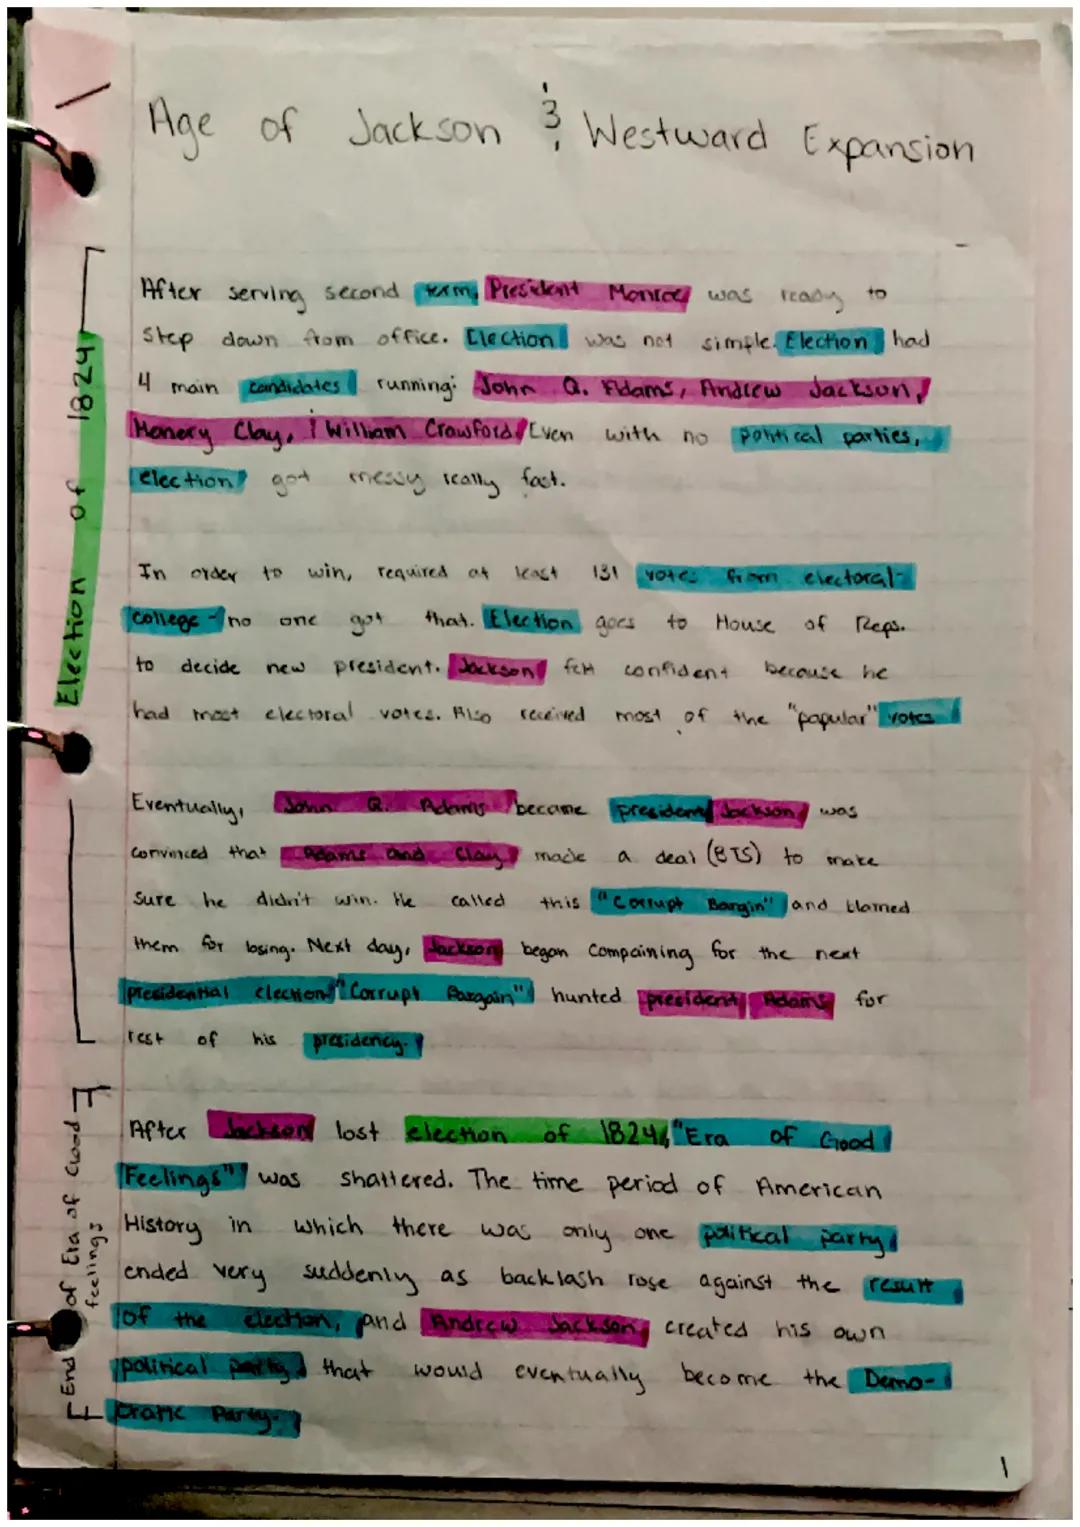 Age of Jackson & Westward Expansion
Election of 1824
After serving second term, President Monroe was ready to
step down from office. Election was not simple. Election had
4 main candidates running: John Q. Adams, Andrew Jackson,
Henery Clay, & William Crawford. Even with no political parties,
election got messy really fast.
In order to win, required at least 131 votes from electoral-
college - no one got that. Election goes to House of Reps.
to decide new president. Jackson felt confident because he
had most electoral votes. Also received most of the "popular" votes
Eventually, John Q. Adams became president. Jackson was
convinced that Adams and Clay made a deal (BTS) to make
sure he didn't win. He called this "Corrupt Bargin" and blamed
them for losing. Next day, Jackson began Compaining for the next
presidential election. "Corrupt Bargain" hunted president Adams for
rest of his presidency.
End of Era of Good feelings
After Jackson lost election of 1824, "Era of Good
Feelings" was shattered. The time period of American
History in which there was only one political party,
ended very suddenly as backlash rose against the result
of the election, and Andrew Jackson created his own
political party that would eventually become the Demo-
cratic Party.
1